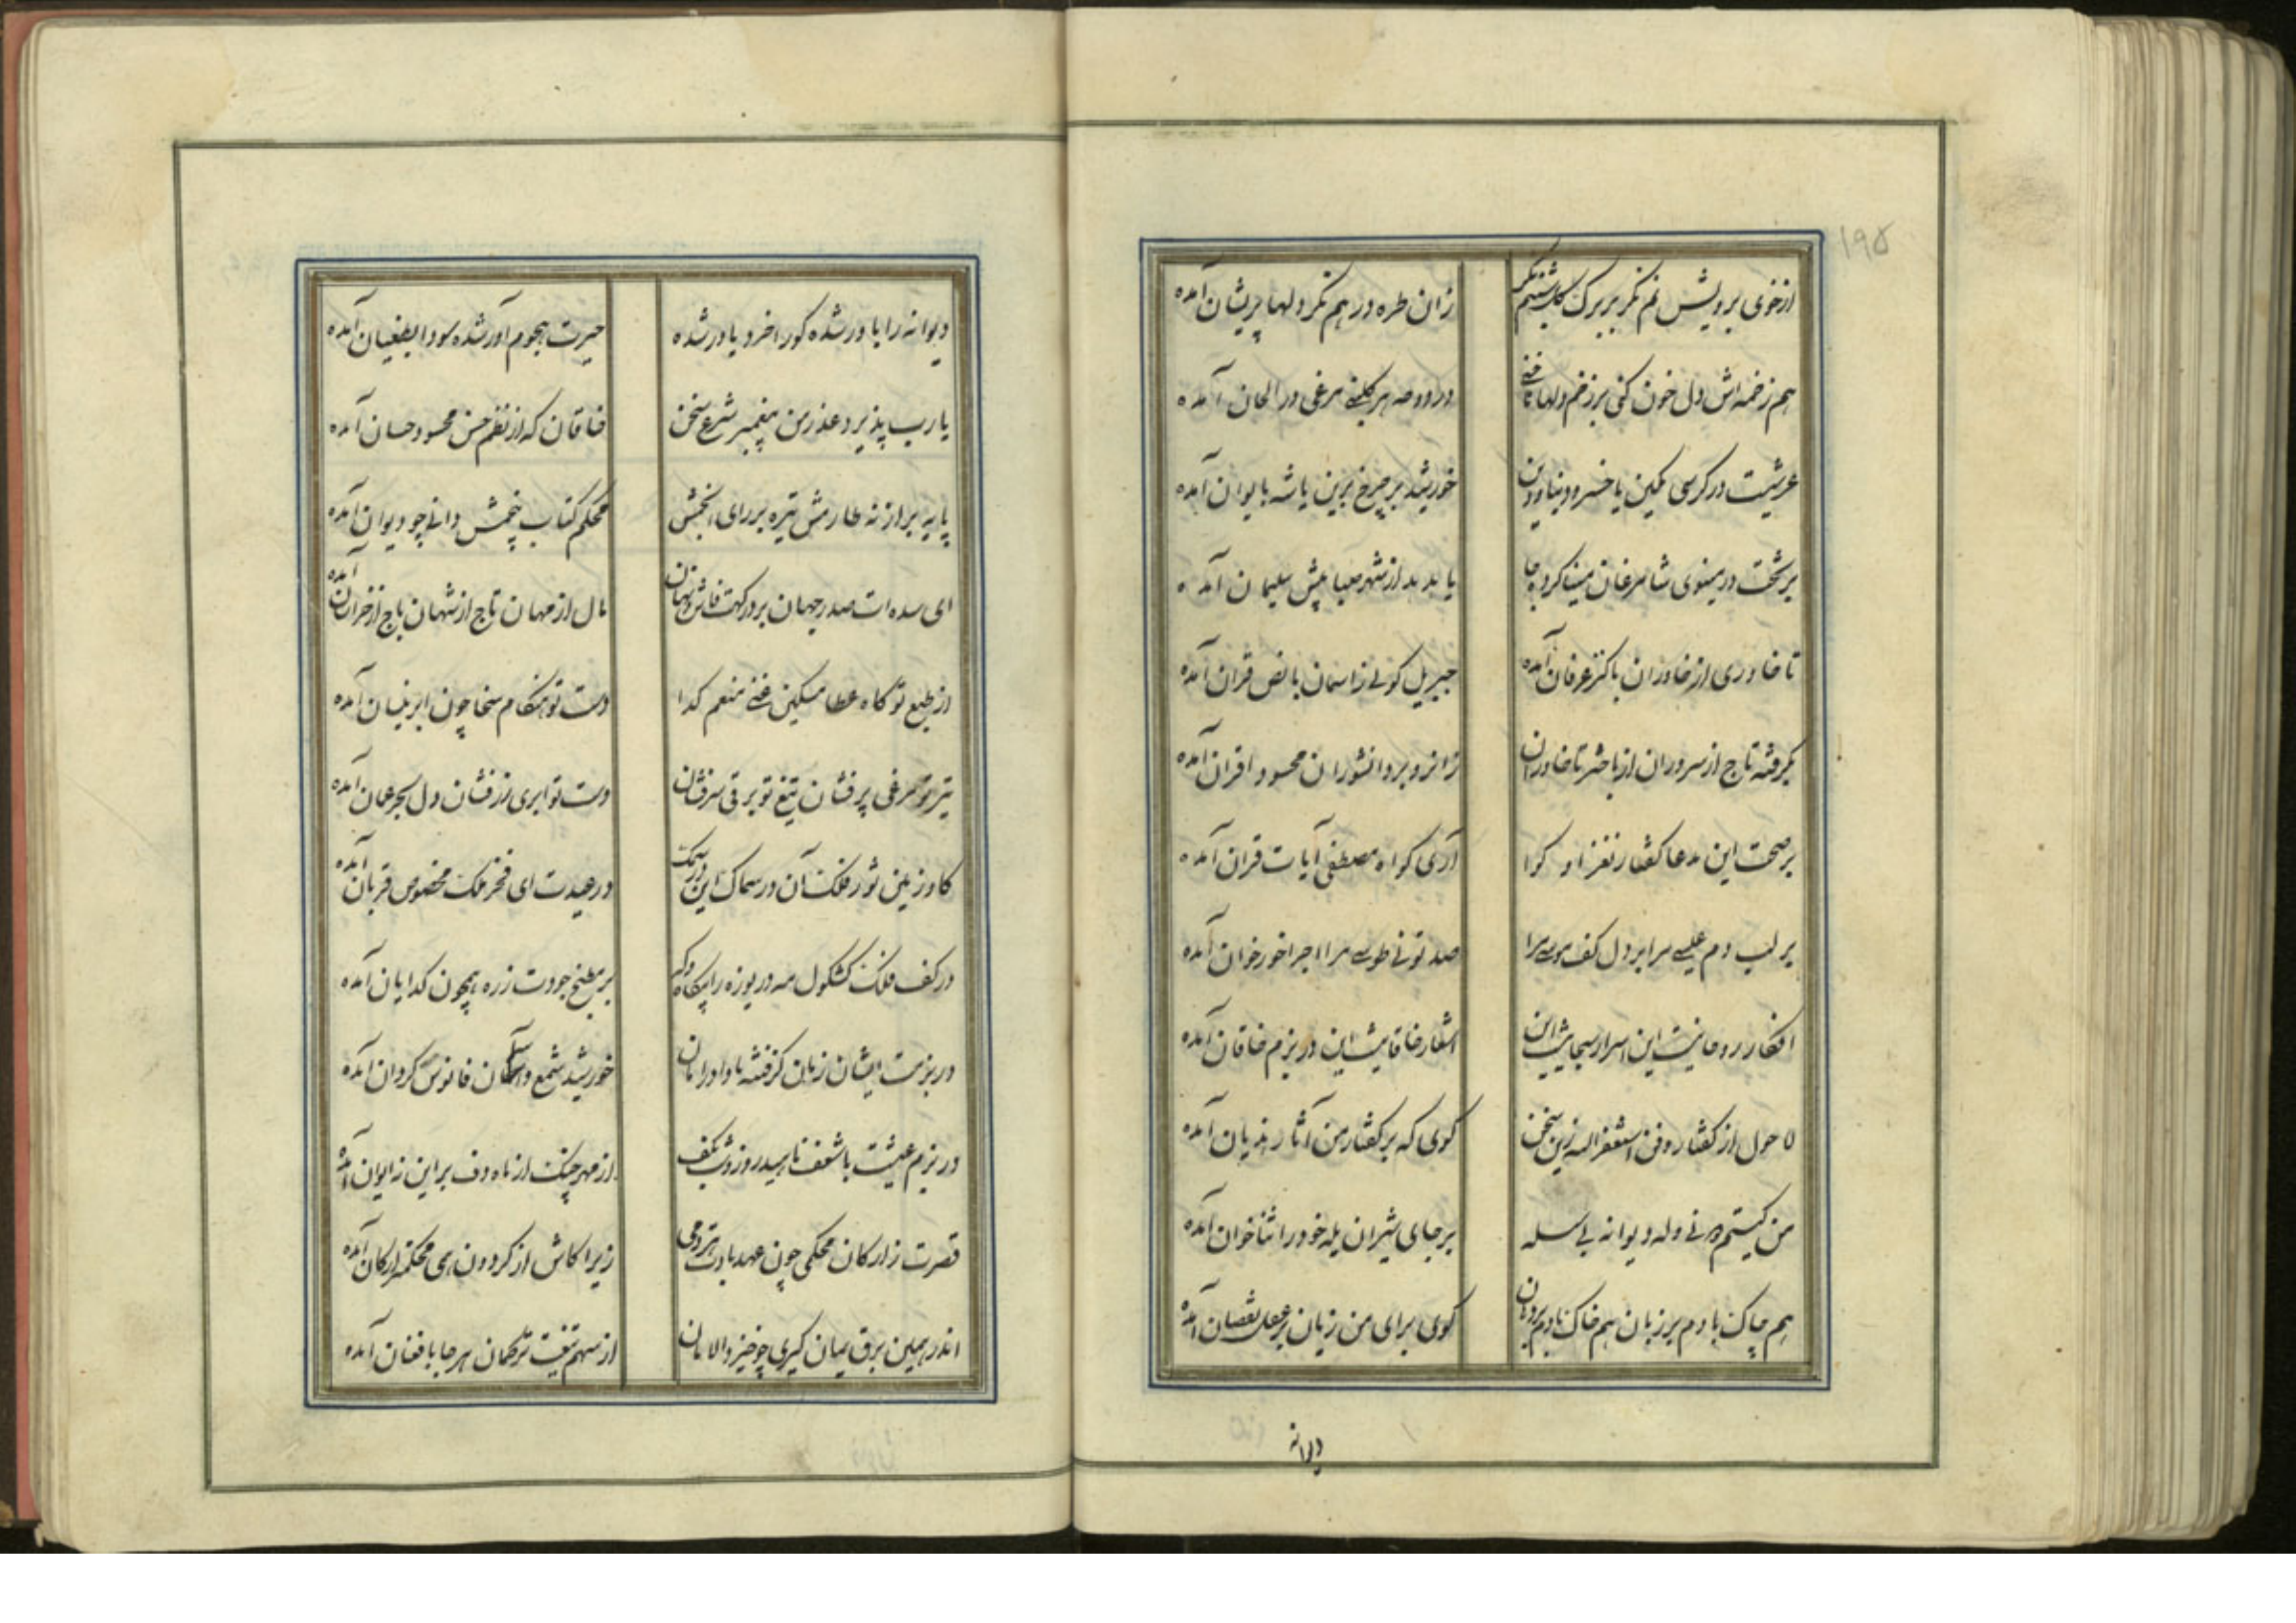 ۱۹۵
از خوی برویش نم نکر بر برک کل شبنم نکر
زان طره درهم نکر دلها پریشان آمده
هم زخمه‌اش دل خون کنی بر زخم دلها
در روضه هر کلبنی مرغی در الحان آمده
عرشیست در کرسی مکین یا خسرو دنیا و دین
خورشید بر چرخ برین یا شه بایوان آمده
بر تخت در مینوی شا مرغان مینا کرده جا
یا هدهد از شهر صبا پیش سلیمان آمده
تا خاوری از خاوران با کنز عرفان آمده
جبریل کوئی ز اسمان با نص قران آمده
بکرفته تاج از سروران از باختر تا خاوران
زانرو بر دانشوران محسود اقران آمده
بر صحت این مدعا کفتار نغز او کوا
آری کواه مصطفی آیات قران آمده
بر لب دم عیسی مرا بر دل کف موسی مرا
صد توئی طوسی مرا اجرا خور خوان آمده
افکار روحانیست این اسرار سبحانیست این
اشعار خاقانیست این در بزم خاقان آمده
لا حول از کفتار و فن استغفر الله زین سخن
کوی که بر کفتار من آثار هذیان آمده
من کیستم دیوانه بی سلسله
بر جای شیران یله خود را ثناخوان آمده
هم چاک بادم بر زبان هم خاک بادم بر دهان
کوی برای من زیان بر عقل نقصان آمده
دیوانه
دیوانه را یاور شده کور اخرد یاور شده
حیرت هجوم آور شده سودا بطغیان آمده
یا رب پذیرد عذر من پیغمبر شرع سخن
خاقان که از نظم حسن محسود حسان آمده
پایه برار نه طارمش تیره بر رای انجمش
محکم کتاب پنجمش دانی چو دیوان آمده
ای سده‌ات صدر جهان بر درکهت فاش و نهان
مال از مهان تاج از شهان باج از خراسان آمده
از طبع تو کاه عطا مسکین غنی منعم کدا
دست تو هنکام سخا چون ابر نیسان آمده
تیر تو مرغی پر فشان تیغ تو برقی سرفشان
دست تو ابری زرفشان دل بحر عمان آمده
کاو زمین ثور فلک آن در سماک این در سمک
در عیدت ای فخر ملک مخصوص قربان آمده
در کف فلک کشکول مه دریوزه را بیکاه و که
بر مطبخ جودت ز ره همچون کدایان آمده
در بزمت ایشان زبان کرفته باد اورا مان
خورشید شمع و آسمان فانوس کردان آمده
در بزم عیشت با شعف ناهید روز و شب بکف
از مهر چنک از ماه دف بر این نه ایوان آمده
قصرت ز ارکان محکمی چون عهد با دست همدمی
زیرا کاش از کردون همی محکمتر ارکان آمده
اندر همین برق یمان کیری چو خیزد الامان
از سهم تیغت ترکمان هر جا بافغان آمده